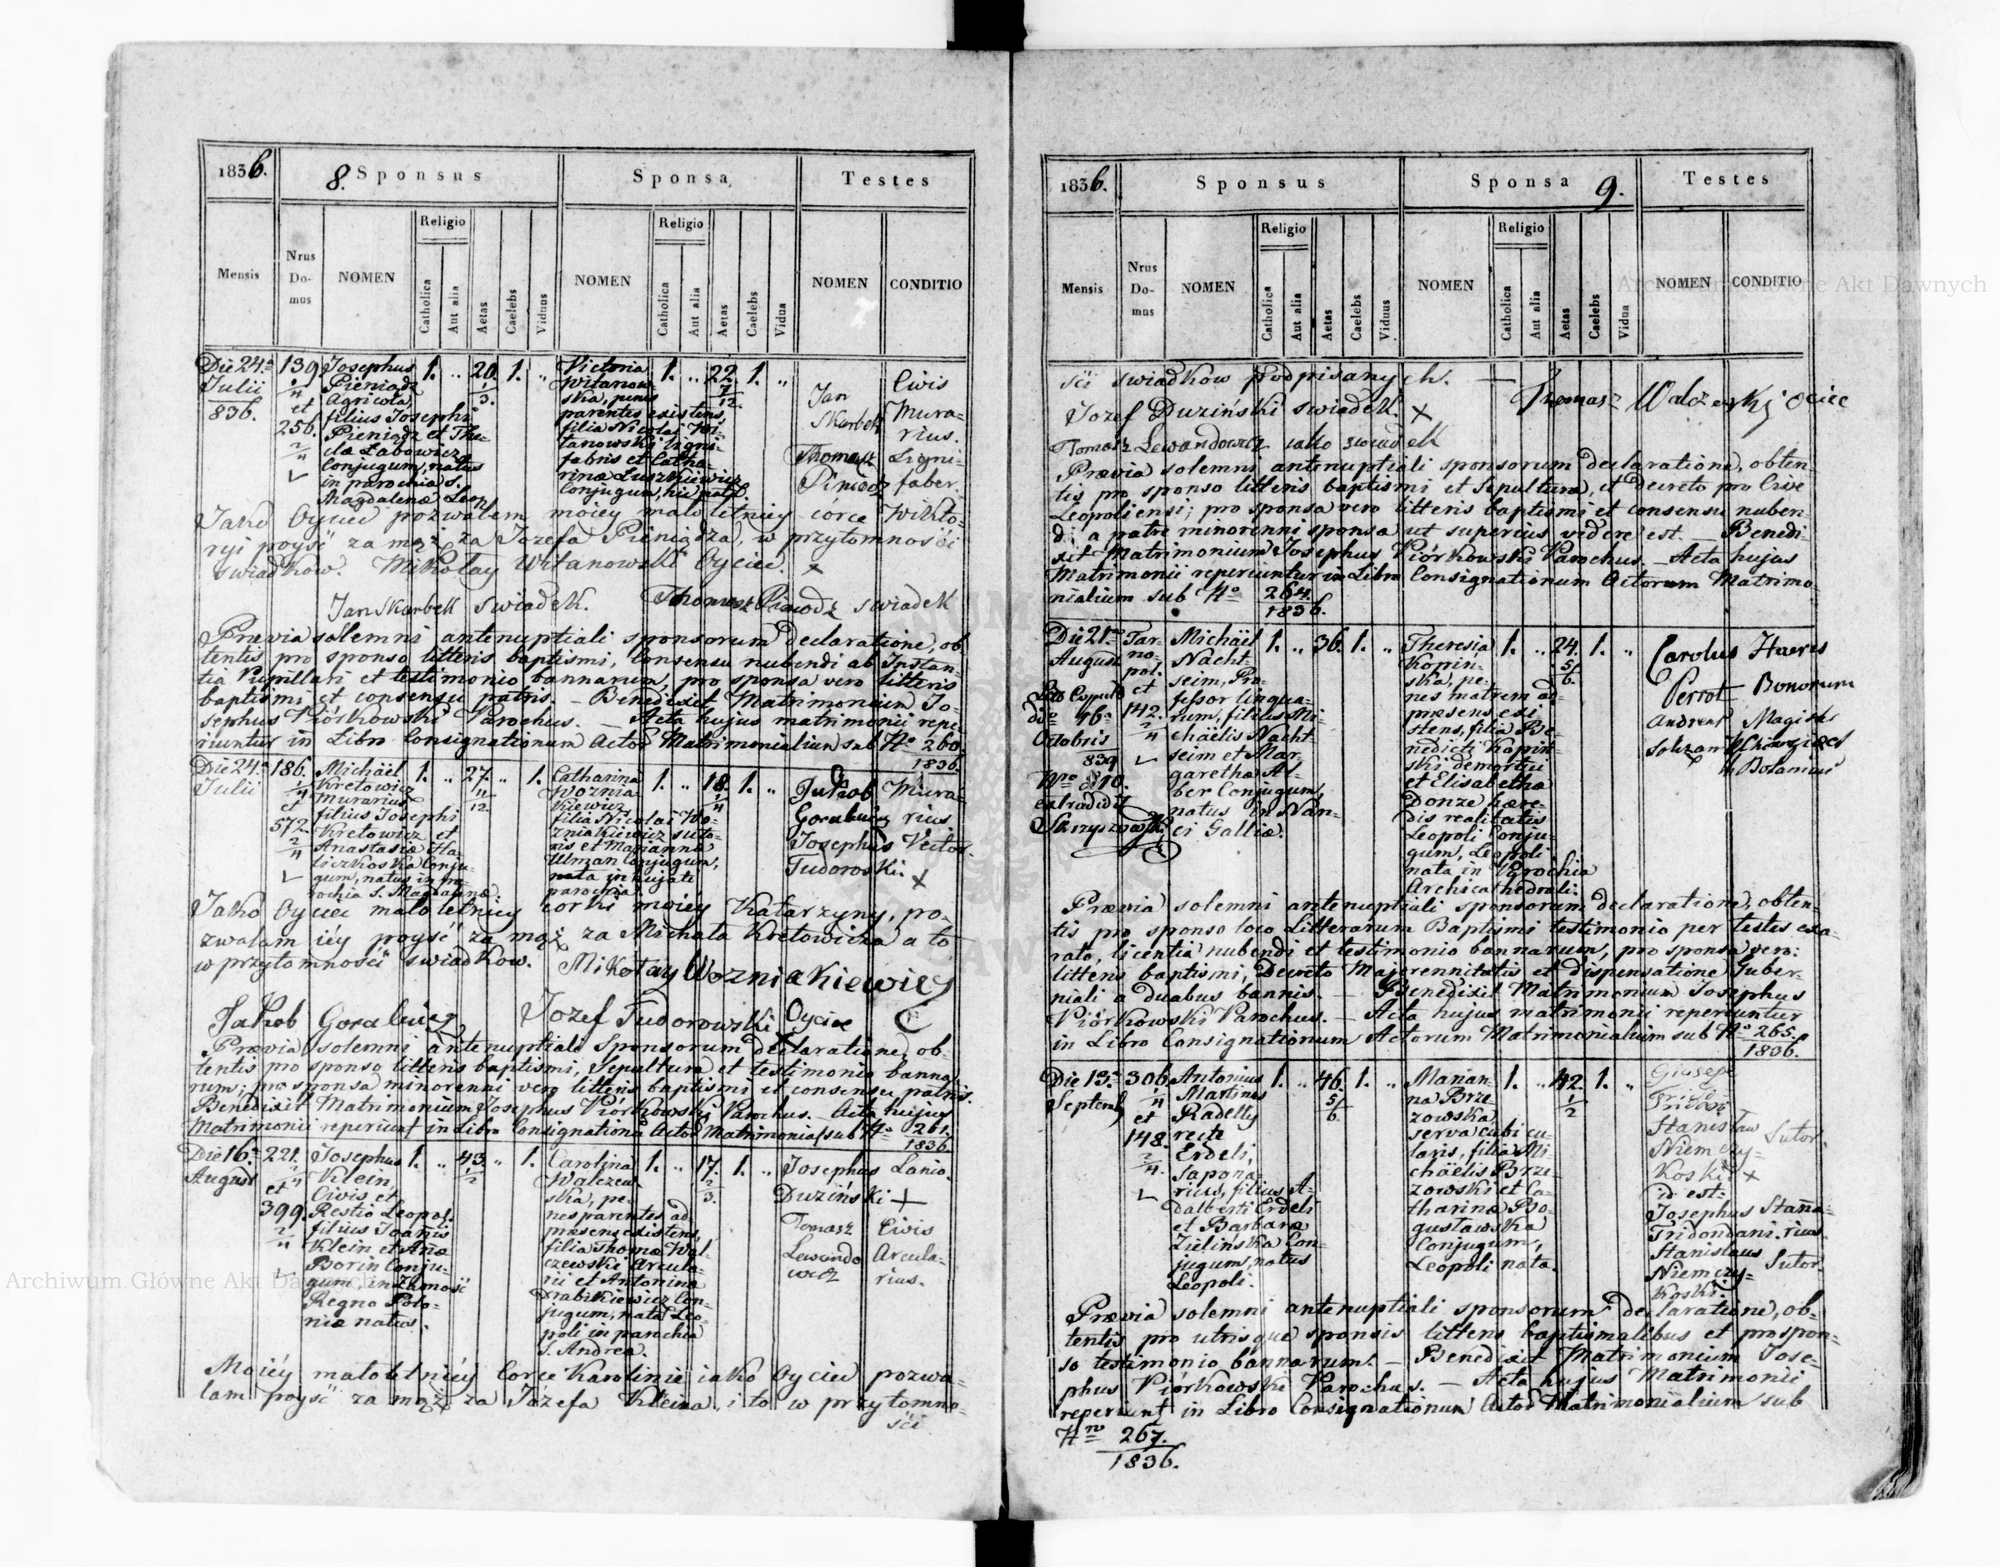 1836.
8.
Sponsus
Sponsa
Testes
Mensis
Nrus Do- mus
NOMEN
Religio
Catholica
Aut alia
Aetas
Caelebs
Viduus
NOMEN
Religio
Catholica
Aut alia
Aetas
Caelebs
Vidua
NOMEN
CONDITIO
Die 24ª
Julii
836.
139
1/4
et
256.
2/4
Josephus
Pieniądz
Agricola,
filius Josephi
Pieniądz et The-
clæ Łabowicz
Conjugum, natus
in parochia S.
Magdalenæ Leop.
1. „ 20. 1. „
1/3.
Victoria
Witanow-
ska, penes
parentes existens,
filia Nicolai Wi-
tanowski ligni-
fabris et Catha-
rinæ Luszkiewicz
Conjugum, hic nata.
1. „ 22. 1. „
7/12.
Jan
Skarbek
Civis
Mura-
rius.
Thomasz
Ligni-
faber.
Jako Oyciec pozwalam moiey małoletniey corce Wikto-
ryi poyść za mąż za Jozefa Pieniądza, w przytomności
swiadkow. Mikołay Witanowski Oyciec. x
Jan Skarbek swiadek. Thomasz swiadek
Prævia solemni antenuptiali sponsorum declaratione, ob-
tentis pro sponso litteris baptismi, Consensu nubendi ab Instan-
tia Pupillari et testimonio bannorum, pro sponsa vero litteris
baptismi et consensu patris. — Benedixit Matrimonium Jo-
sephus Piórkowski Parochus. — Acta hujus matrimonii repe-
riuntur in Libro Consignationum Actor. Matrimonialium sub Nº 260.
1836.
Die 24ª
Julii
186.
1/4
et
572.
2/4
Michäel
Kretowicz
murarius,
filius Josephi
Kretowicz et
Anastasiæ Ha-
liczkoska Conju-
gum, natus in pa-
rochia S. Magdalenæ.
1. „ 27. „ 1.
11/12.
Catharina
Woznia-
kiewicz,
filia Nicolai Wo-
zniakiewicz suto-
ris et Mariannæ
Ulman Conjugum,
nata in hujate
parochia.
1. „ 18. 1. „
1/4
Jakob
Mura-
rius
Josephus
Tudoroski. x
Vector.
Jako Oyciec maloletniey corki moiéy Katarzyny, po-
zwalam iéy poyść za mąż za Michała Kretowicza a to
w przytomności swiadkow. Mikołay Wozniakiewicz
Oyciec
Jakob
Jozef Tudorowski x
Prævia solemni antenuptiali sponsorum declaratione, ob-
tentis pro sponso litteris baptismi, Sepulturæ et testimonio banno-
rum; pro sponsa minorenni vero litteris baptismi et consensu patris.
Benedixit Matrimonium Josephus Piórkowski Parochus. — Acta hujus
Matrimonii reperiunt. in Libro Consignationum Actor. Matrimonial. sub Nº 261.
1836.
Die 16ª
August
221.
et
399.
2/4
Josephus
Klein,
Civis et
Restio Leopol.
filius Joannis
Klein, et Annæ
Borin Conju-
gum, in Zamość
Regno Polo-
niæ natus.
1. „ 43. „ 1.
1/2
Carolina
Walczew-
ska, pe-
nes parentes ad-
præsens existens,
filia Thomæ Wal-
czewski Arcula-
rii et Antonina
Drabikiewicz Con-
jugum, nata Leo-
poli in parochia
S. Andreæ.
1. „ 17. 1. „
2/3.
Josephus
Duziński +
Lanio.
Tomasz
Lewando-
wicz
Civis
Arcula-
rius.
Moiéy małoletniéy Corce Karolinie iako Oyciec pozwa-
lam poyść za mąż za Józefa Kleina, i to w przytomno-
ści
1836.
Sponsus
Sponsa
9.
Testes
Mensis
Nrus Do- mus
NOMEN
Religio
Catholica
Aut alia
Aetas
Caelebs
Viduus
NOMEN
Religio
Catholica
Aut alia
Aetas
Caelebs
Vidua
NOMEN
CONDITIO
ści swiadkow podpisanych. — Thomasz Walczewski ociec
Jozef Duziński swiadek. x
Tomasz Lewandowicz jako swiadek
Prævia solemni antenuptiali sponsorum declaratione, obten-
tis pro sponso litteris baptismi et Sepulturæ, et decreto pro Cive
Leopoliensi; pro sponsa vero litteris baptismi et consensu nuben-
di a patre minorenni sponsa ut superius videre est. — Benedi-
xit Matrimonium Josephus Piórkowski Parochus. — Acta hujus
Matrimonii reperiuntur in Libro Consignationum Actorum Matrimo-
nialium sub Nº 264.
1836.
Die 21ª
August
Tar-
no-
pol.
et
142.
2/4
46ª
Octobris
839
Nro 810.
extradidit
Michäel
Nacht-
seim, Pro-
fessor lingua-
rum, filius Mi-
chäelis Nacht-
seim et Mar-
garethæ Al-
ber Conjugum,
natus in Nan-
ci Galliæ.
1. „ 36. 1. „
Theresia
Kopin-
ska, pe-
nes matrem ad-
præsens exi-
stens, filia Be-
nedicti Kopin-
ski demortui
et Elisabethæ
Donze hære-
dis realitatis
Leopoli Conju-
gum, Leopoli
nata in Parochia
Archicathedrali.
1. „ 24. 1. „
5/6.
Carolus
Perrot
Haeres
Bonorum
Andreas
Magister
Chirurgiae
Prævia solemni antenuptiali sponsorum declaratione, obten-
tis pro sponso loco litterarum Baptismi testimonio per testes exa-
rato, licentia nubendi et testimonio bannorum, pro sponsa vero:
litteris baptismi, Decreto Majorennitatis et dispensatione Guber-
niali a duabus bannis. — Benedixit Matrimonium Josephus
Piórkowski Parochus. — Acta hujus matrimonii reperiuntur
in Libro Consignationum Actorum Matrimonialium sub Nº 265.
1836.
Die 13ª
Septemb.
306.
1/4
et
148.
2/4.
Antonius
Martinus
Radelly
recte
Erdeli,
Sapona-
rius, filius A-
dalberti Erdeli
et Barbaræ
Zielińska Con-
jugum, natus
Leopoli.
1. „ 46. 1. „
5/6.
Marian-
na Brze-
zowska,
serva cubicu-
laris, filia Mi-
chäelis Brze-
zowski et Ca-
tharinæ Bo-
gustawska
Conjugum,
Leopoli nata.
1. „ 42. 1. „
1/2
Stanisław
Niemczy-
koski x
Sutor.
id est:
Josephus
Tridondani.
Stanislaus
Niemczy-
koski.
Sutor.
Prævia solemni antenuptiali sponsorum declaratione, ob-
tentis pro utrisque sponsis litteris baptismalibus et pro spon-
so testimonio bannorum. — Benedixit Matrimonium Jose-
phus Piórkowski Parochus. — Acta hujus Matrimonii
reperiunt. in Libro Consignationum Actor. Matrimonialium sub
Nro 267.
1836.
Archiwum Główne Akt Dawnych
Archiwum Główne Akt Dawnych